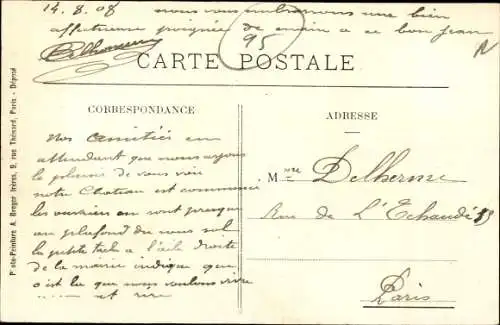 14.8.08 nous vous embrassons une bien
affectueuse poignée de main a ce bon Jean
95
CARTE POSTALE
CORRESPONDANCE
ADRESSE
Nos amitiés en
attendant que nous ayons
le plaisir de vous voir
notre Chateau est commencé
les ouvriers en sont presque
au plafond du sous sol
la petite tache a l'oeil droite
de la mairie indique que
c'est la que nous voulons vivre
et rire
Mme Delherme
Rue de L'Echaudé
Paris
Photo-Peinture A. Breger frères, 9, rue Thénard, Paris - Déposé